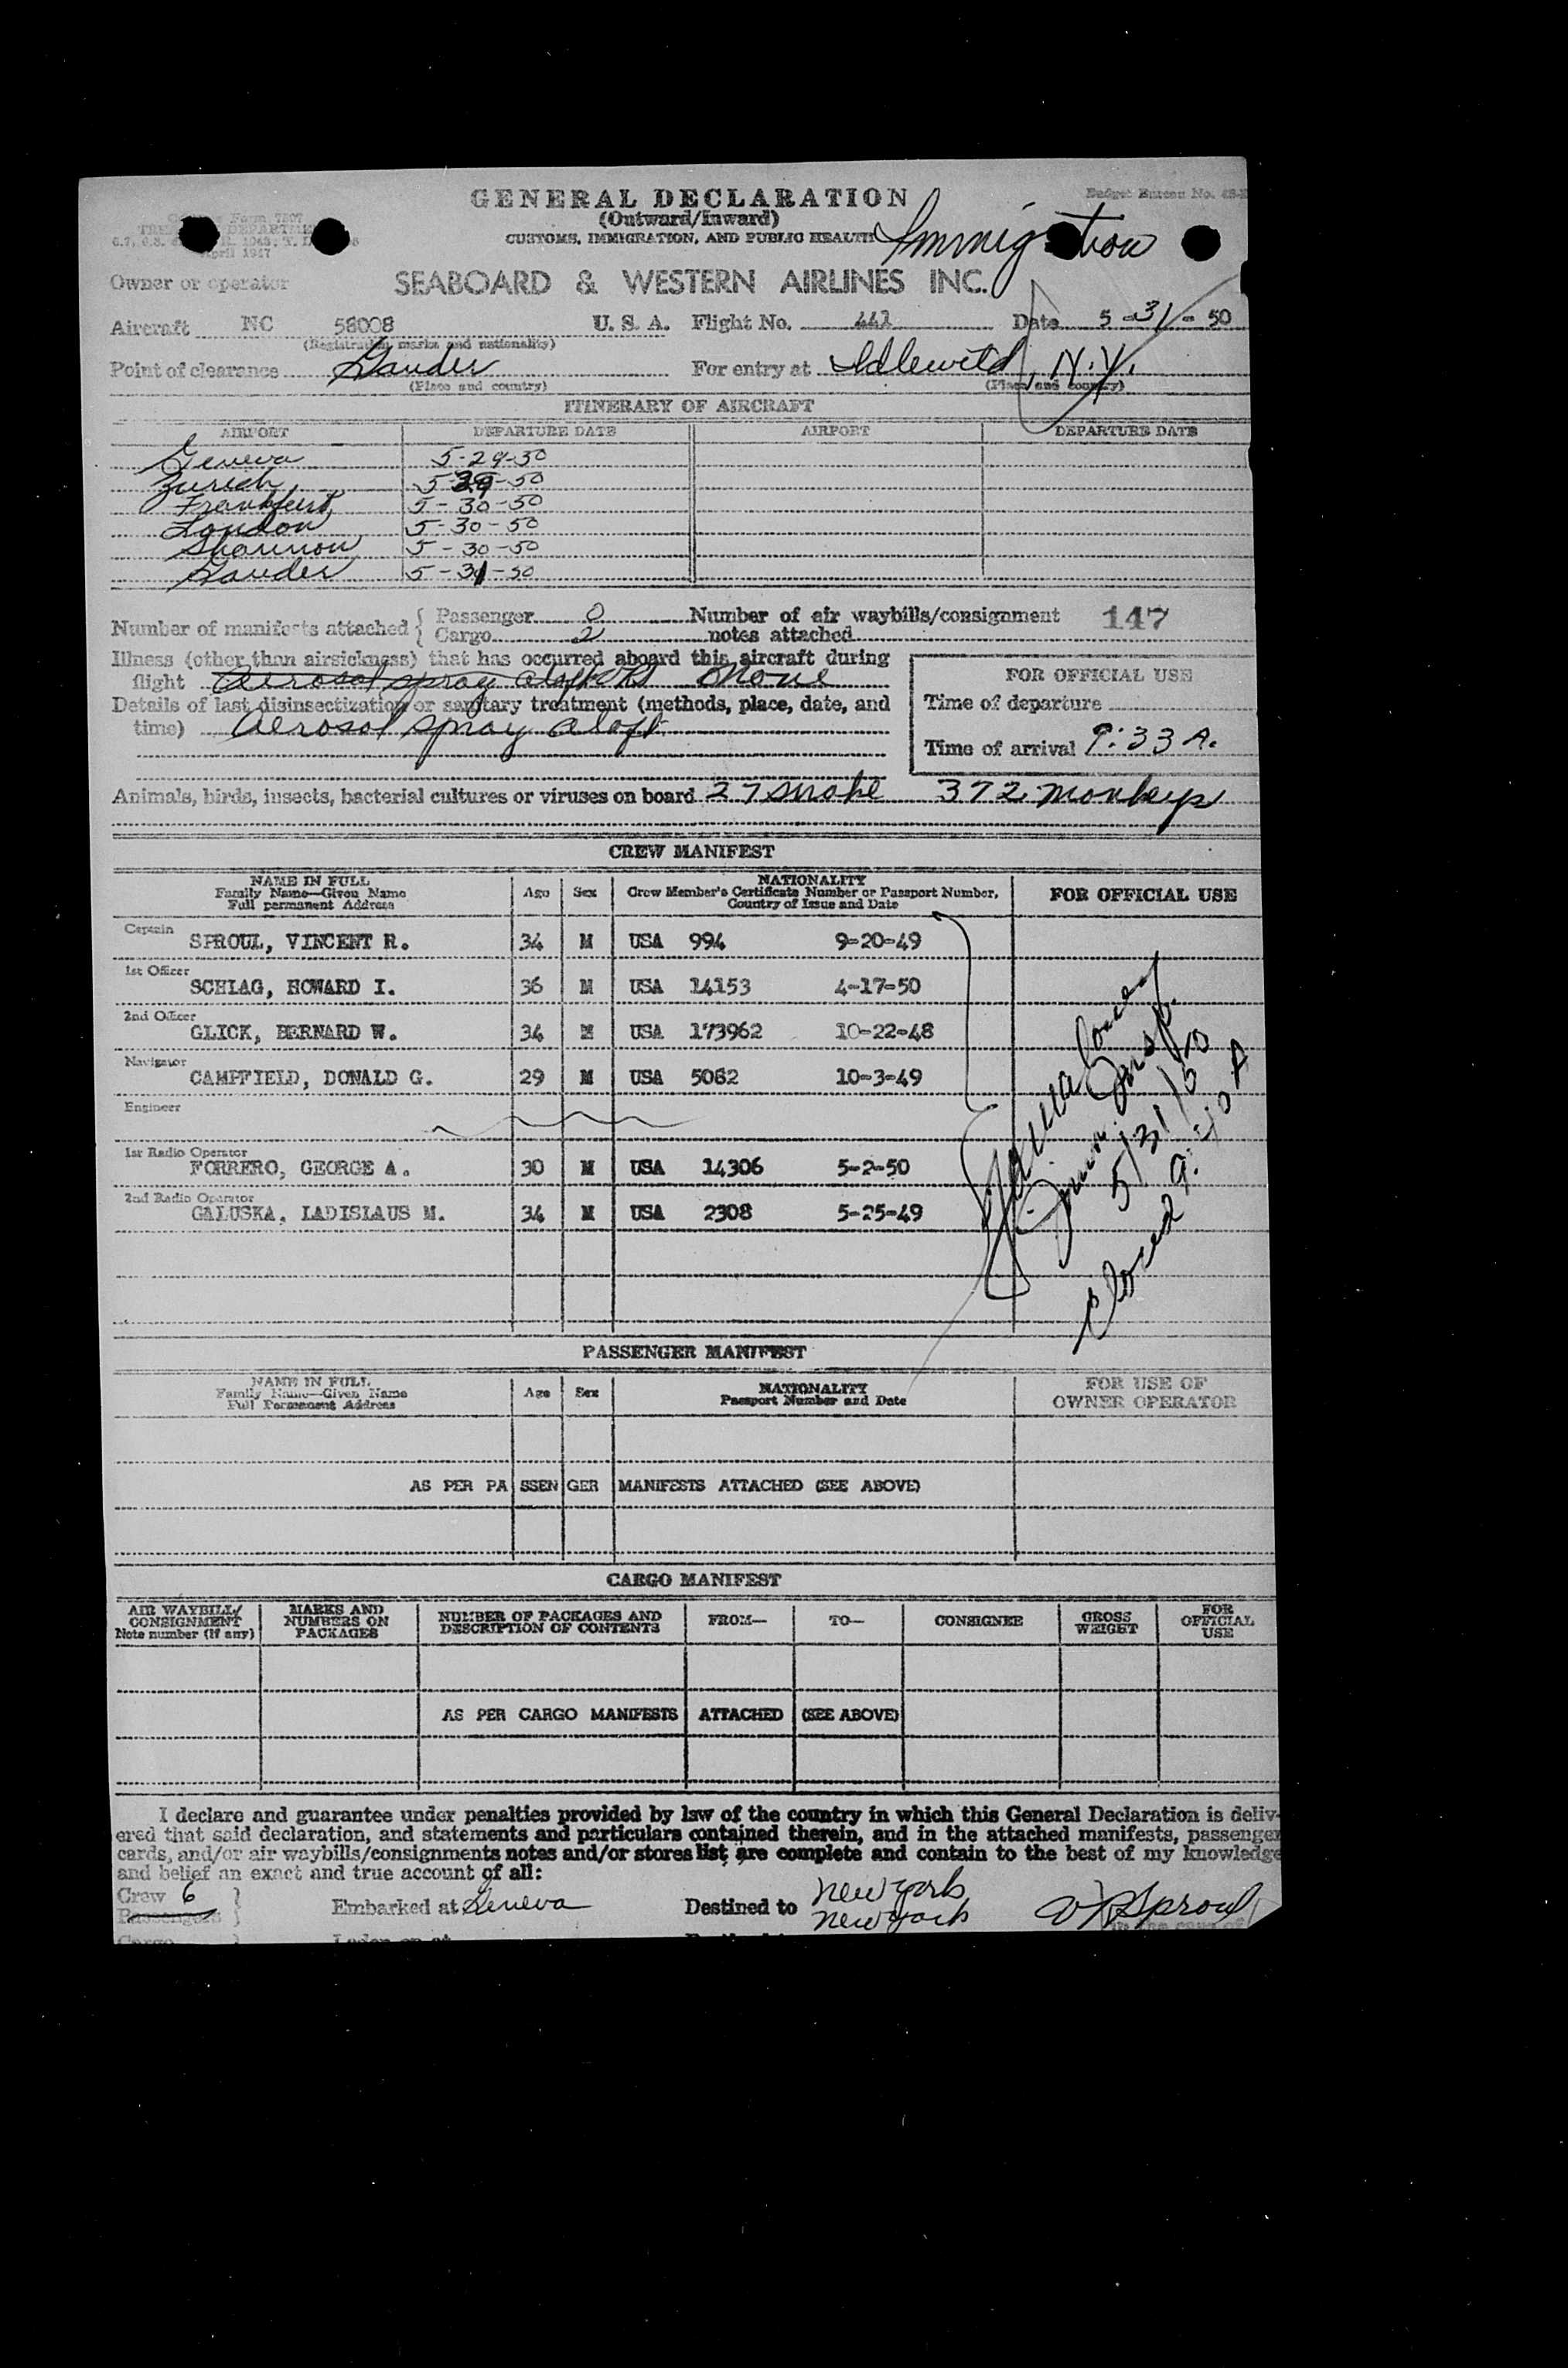 GENERAL DECLARATION
(Outward/Inward)
CUSTOMS, IMMIGRATION, AND PUBLIC HEALTH
Immigration
Budget Bureau No.
Customs Form 7507
April 1947
Owner or operator SEABOARD & WESTERN AIRLINES INC.
Aircraft NC 58008 U. S. A. Flight No. 441 Date 5-31-50
(Registration marks and nationality)
Point of clearance Gander For entry at Idlewild, N.Y.
(Place and country) (Place and country)
ITINERARY OF AIRCRAFT
AIRPORT DEPARTURE DATE AIRPORT DEPARTURE DATE
Geneva 5-29-50
Zurich 5-29-50
Frankfurt 5-30-50
London 5-30-50
Shannon 5-30-50
Gander 5-31-50
Number of manifests attached { Passenger 0 Number of air waybills/consignment 147
Cargo 2 notes attached
Illness (other than airsickness) that has occurred aboard this aircraft during
flight Aerosol spray aloft None
FOR OFFICIAL USE
Details of last disinsectization or sanitary treatment (methods, place, date, and
time) Aerosol spray aloft
Time of departure
Time of arrival 9:33 A.
Animals, birds, insects, bacterial cultures or viruses on board 27 Snake 372 Monkeys
CREW MANIFEST
NAME IN FULL Age Sex NATIONALITY FOR OFFICIAL USE
Family Name—Given Name Crew Member's Certificate Number or Passport Number,
Full permanent Address Country of Issue and Date
Captain
SPROUL, VINCENT R. 34 M USA 994 9-20-49
1st Officer
SCHLAG, HOWARD I. 36 M USA 14153 4-17-50
2nd Officer
GLICK, BERNARD W. 34 M USA 173962 10-22-48
Navigator
CAMPFIELD, DONALD G. 29 M USA 5062 10-3-49
Engineer
1st Radio Operator
FORRERO, GEORGE A. 30 M USA 14306 5-2-50
2nd Radio Operator
GALUSKA, LADISLAUS M. 34 M USA 2308 5-25-49
Immn. Insp.
5/31/50
Closed 9:40 A
PASSENGER MANIFEST
NAME IN FULL Age Sex NATIONALITY FOR USE OF
Family Name—Given Name Passport Number and Date OWNER OPERATOR
Full Permanent Address
AS PER PASSENGER MANIFESTS ATTACHED (SEE ABOVE)
CARGO MANIFEST
AIR WAYBILL/ MARKS AND NUMBER OF PACKAGES AND FROM— TO— CONSIGNEE GROSS FOR
CONSIGNMENT NUMBERS ON DESCRIPTION OF CONTENTS WEIGHT OFFICIAL
Note number (if any) PACKAGES USE
AS PER CARGO MANIFESTS ATTACHED (SEE ABOVE)
I declare and guarantee under penalties provided by law of the country in which this General Declaration is deliv-
ered that said declaration, and statements and particulars contained therein, and in the attached manifests, passenger
cards, and/or air waybills/consignments notes and/or stores list, are complete and contain to the best of my knowledge
and belief an exact and true account of all:
Crew 6 Embarked at Geneva Destined to New York
Passengers New York
V R Sproul
Cargo